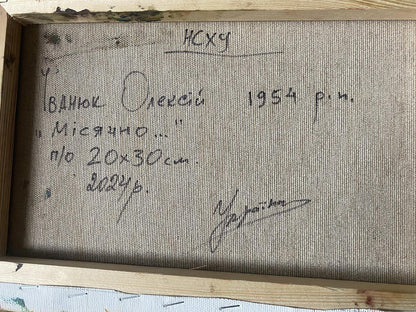 НСХУ
Іванюк Олексій 1954 р.н.
„Місячно..."
п/о 20х30см.
2024р.
Україна